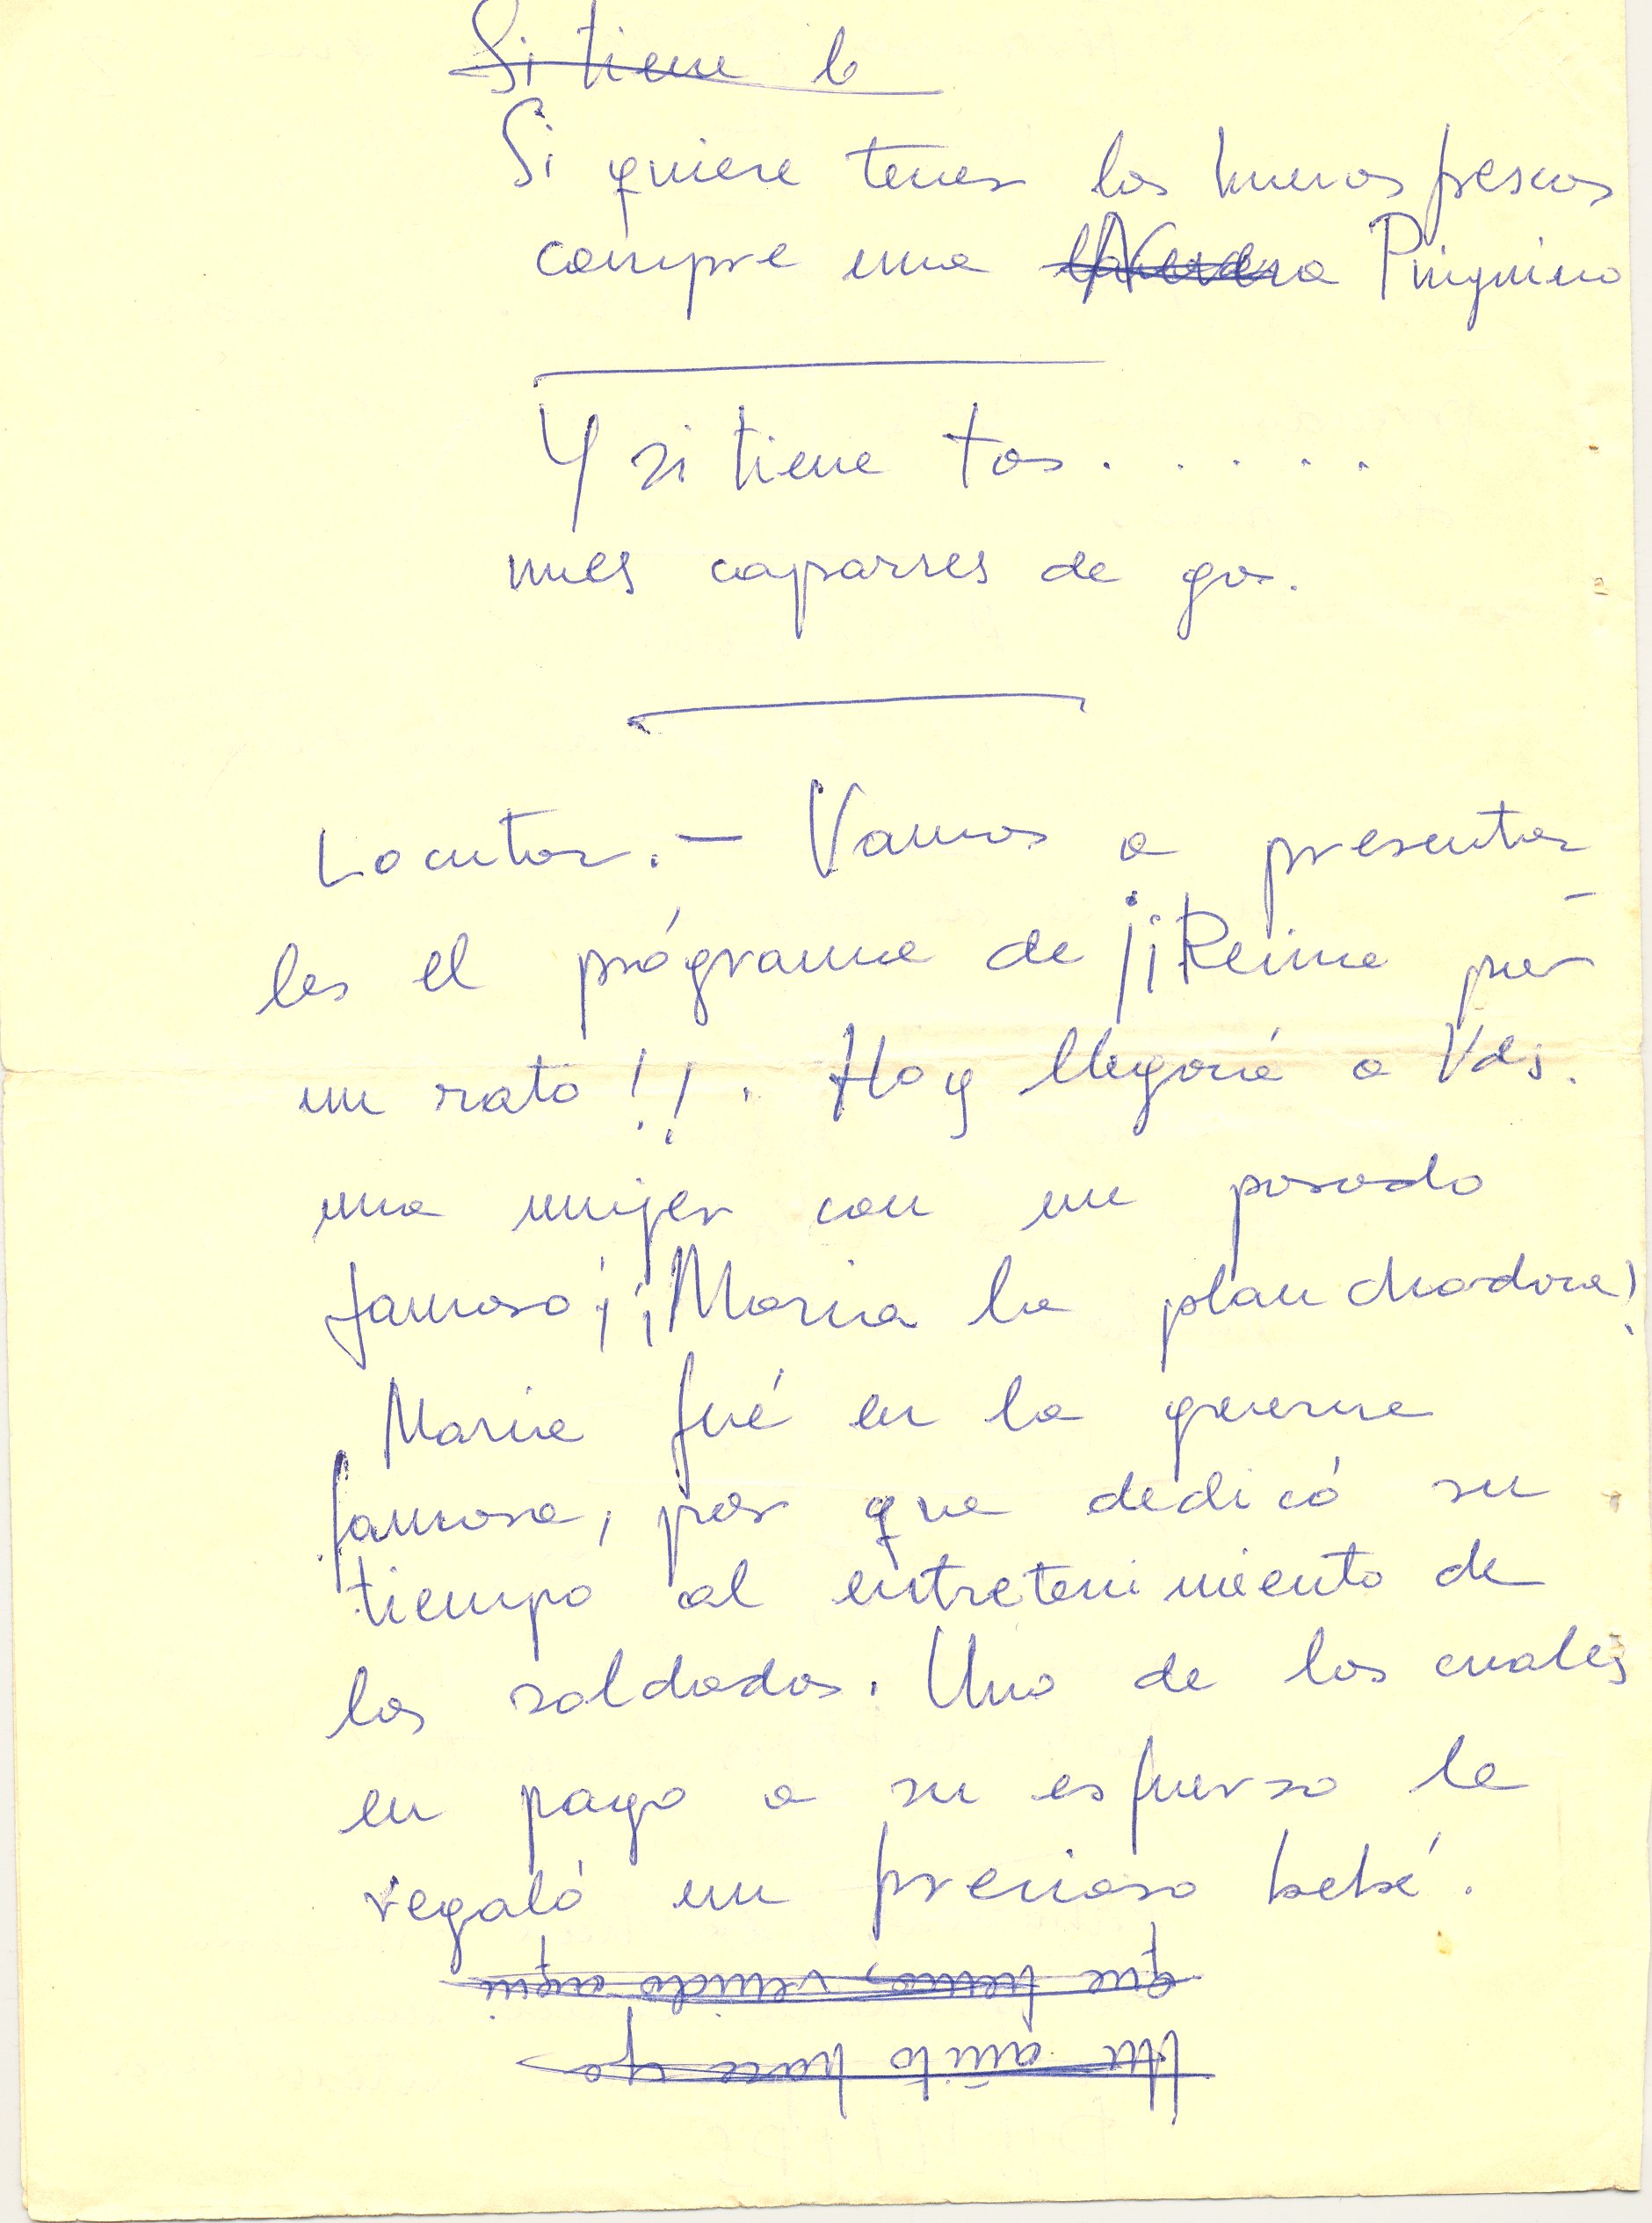 Si tiene lo
Si quiere tener los huevos frescos
compre una Nevera Pinguino
Y si tiene tos.....
mes caparres de gos.
Locutor.- Vamos a presentar-
les el prógrama de ¡¡Reina por
un rato!!. Hoy llegará a Vds.
una mujer con un pasado
famoso ¡¡Maria la planchadora!
Maria fué en la guerra
famosa, por que dedicó su
tiempo al entretenimiento de
los soldados. Uno de los cuales
en pago a su esfuerso le
regaló un precioso bebé.
que hemos venido aqui
Un añito hace ya